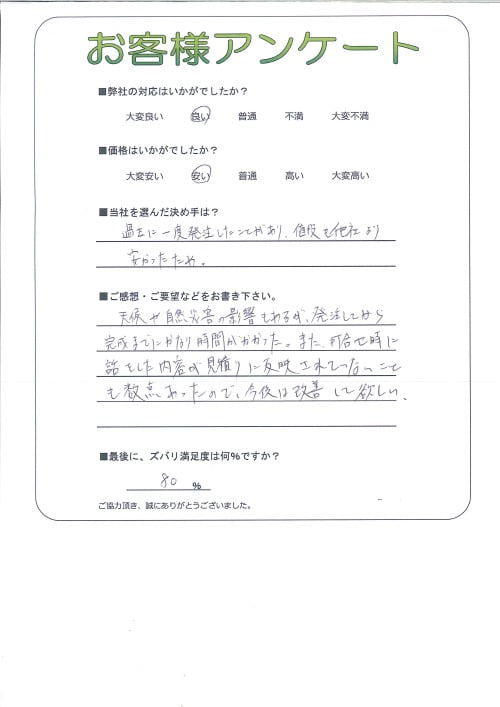 お客様アンケート
■弊社の対応はいかがでしたか?
大変良い 良い 普通 不満 大変不満
■価格はいかがでしたか?
大変安い 安い 普通 高い 大変高い
■当社を選んだ決め手は?
過去に一度発注したことがあり、値段も他社より
安かったため。
■ご感想・ご要望などをお書き下さい。
天候や自然災害の影響もあるが、発注してから
完成までにかなり時間がかかった。また、打合せ時に
話をした内容が見積りに反映されていないこと
も数点あったので、今後は改善して欲しい。
■最後に、ズバリ満足度は何%ですか?
80 %
ご協力頂き、誠にありがとうございました。